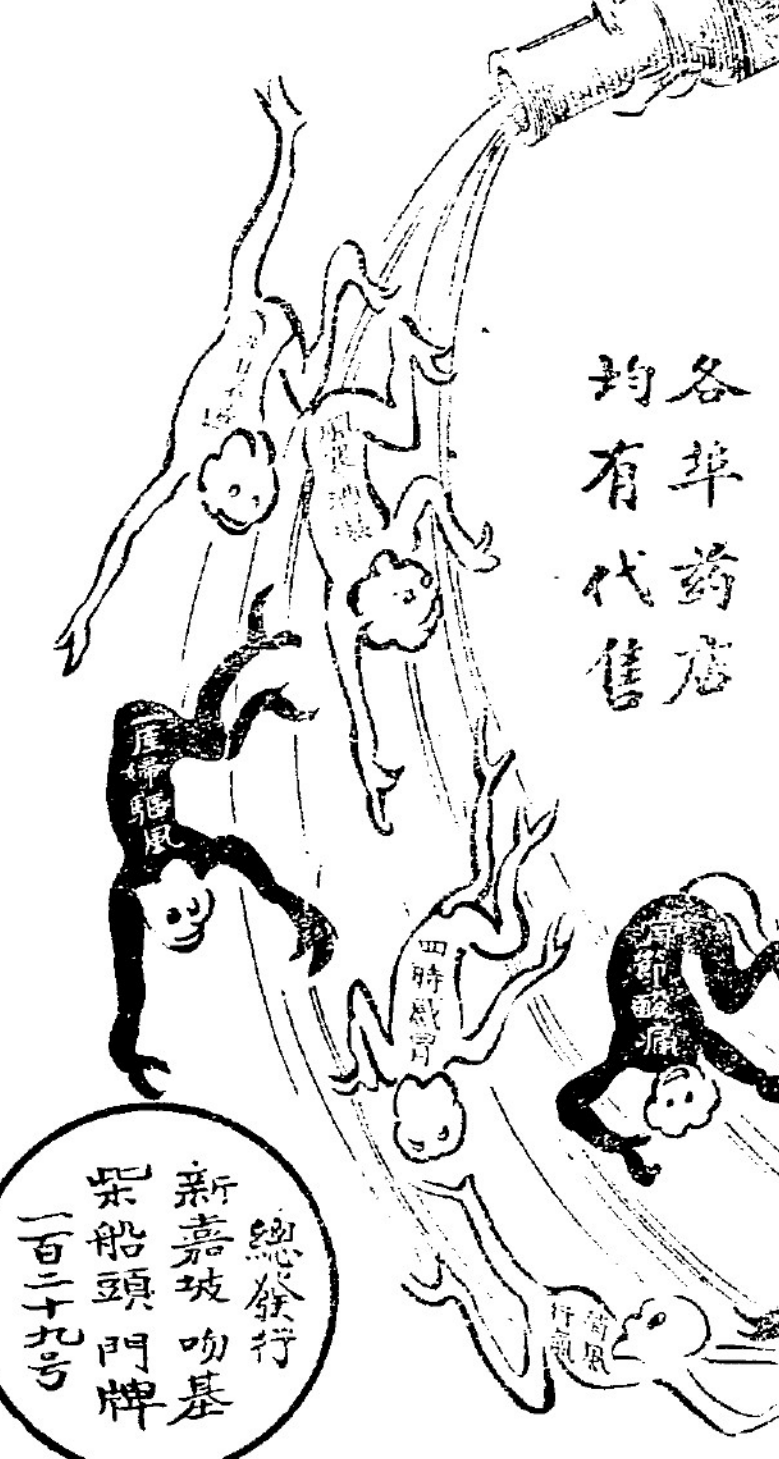 各埠药店
均有代售
產婦驅風
四時感冒
骨節酸痛
行氣
總發行
新嘉坡吻基
柴船頭門牌
一百二十九号